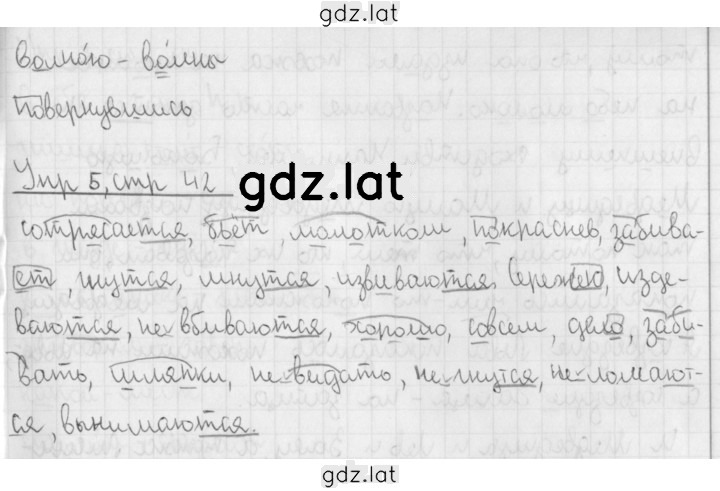 gdz.lat
волною - волны
повернувшись
Упр 5, стр 42
gdz.lat
сотрясается, бьёт, молотком, покраснев, забива-
ет, гнутся, мнутся, извиваются, бережен, изде-
ваются, не вбиваются, хорошо, совсем, дело, заби-
вать, шляпки, не видать, не гнутся, не ломают-
ся, вынимаются.
gdz.lat